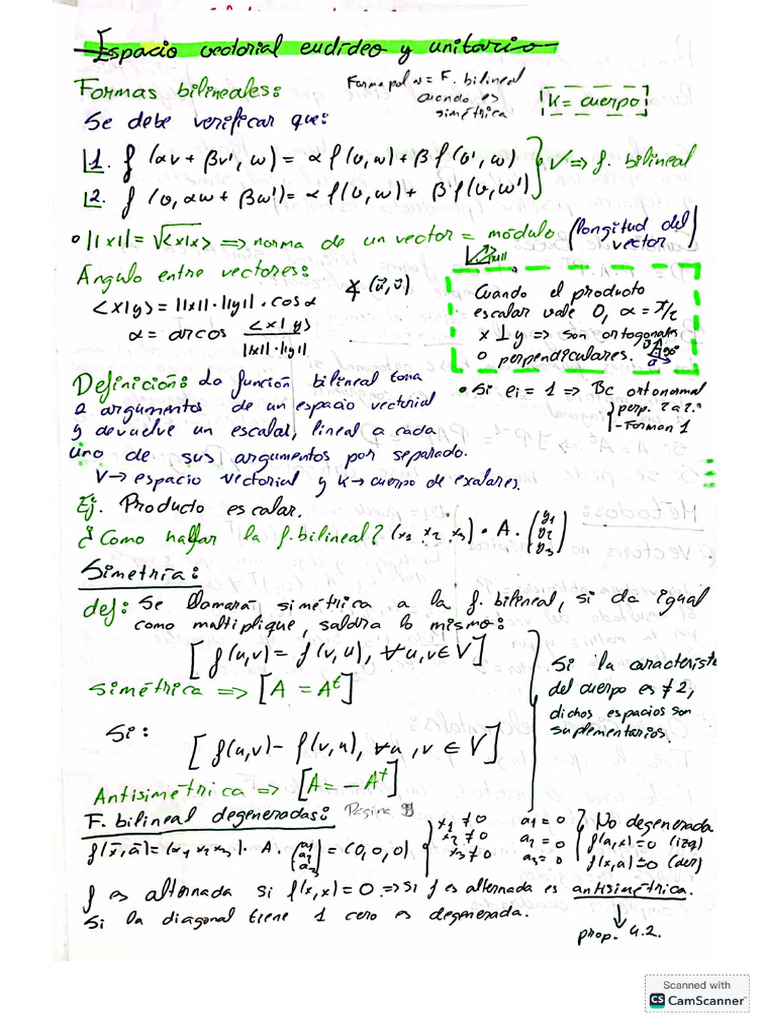 Espacio vectorial euclídeo y unitario
Formas bilineales:
Forma polar = F. bilineal
cuando es
simétrica
K = cuerpo
Se debe verificar que:
1. f(αv + βv', w) = α f(v, w) + β f(v', w)
2. f(v, αw + βw') = α f(v, w) + β f(v, w')
V ⇒ f. bilineal
||x|| = √<x|x> ⇒ norma de un vector = módulo (longitud del vector)
Ángulo entre vectores:
∡(u⃗, v⃗)
<x|y> = ||x|| · ||y|| · cos α
α = arcos <x|y> / ||x||·||y||
Cuando el producto
escalar vale 0, α = π/2
x ⊥ y ⇒ son ortogonales
o perpendiculares. 90º
Definición: La función bilineal toma
2 argumentos de un espacio vectorial
y devuelve un escalar, lineal a cada
uno de sus argumentos por separado.
V → espacio vectorial y K → cuerpo de exalares.
• Si ei = 1 ⇒ Bc ortonormal
perp. 2 a 2.
- Forman 1
Ej. Producto escalar.
¿Como hallar la f. bilineal? (x1 x2 x3) · A · (y1 y2 y3)
Simetría:
def: Se llamará simétrica a la f. bilineal, si da igual
como multiplique, saldra lo mismo:
[f(u,v) = f(v,u), ∀u,v∈V]
Simétrica ⇒ [A = Aᵗ]
Si la caracterist
del cuerpo es ≠ 2,
dichos espacios son
suplementarios.
Si:
[f(u,v) - f(v,u), ∀u, v ∈ V]
Antisimétrica ⇒ [A = -Aᵗ]
F. bilineal degeneradas: Página
f(x̄, ā) = (x1 x2 x3) · A · (a1 a2 a3) = (0, 0, 0)
x1 ≠ 0
x2 ≠ 0
x3 ≠ 0
a1 = 0
a2 = 0
a3 = 0
No degenerada
f(a,x) = 0 (izq)
f(x,a) = 0 (der)
f es alternada si f(x,x) = 0 ⇒ si f es alternada es antisimétrica.
Si la diagonal tiene 1 cero es degenerada.
prop. 4.2.
Scanned with
CS CamScanner